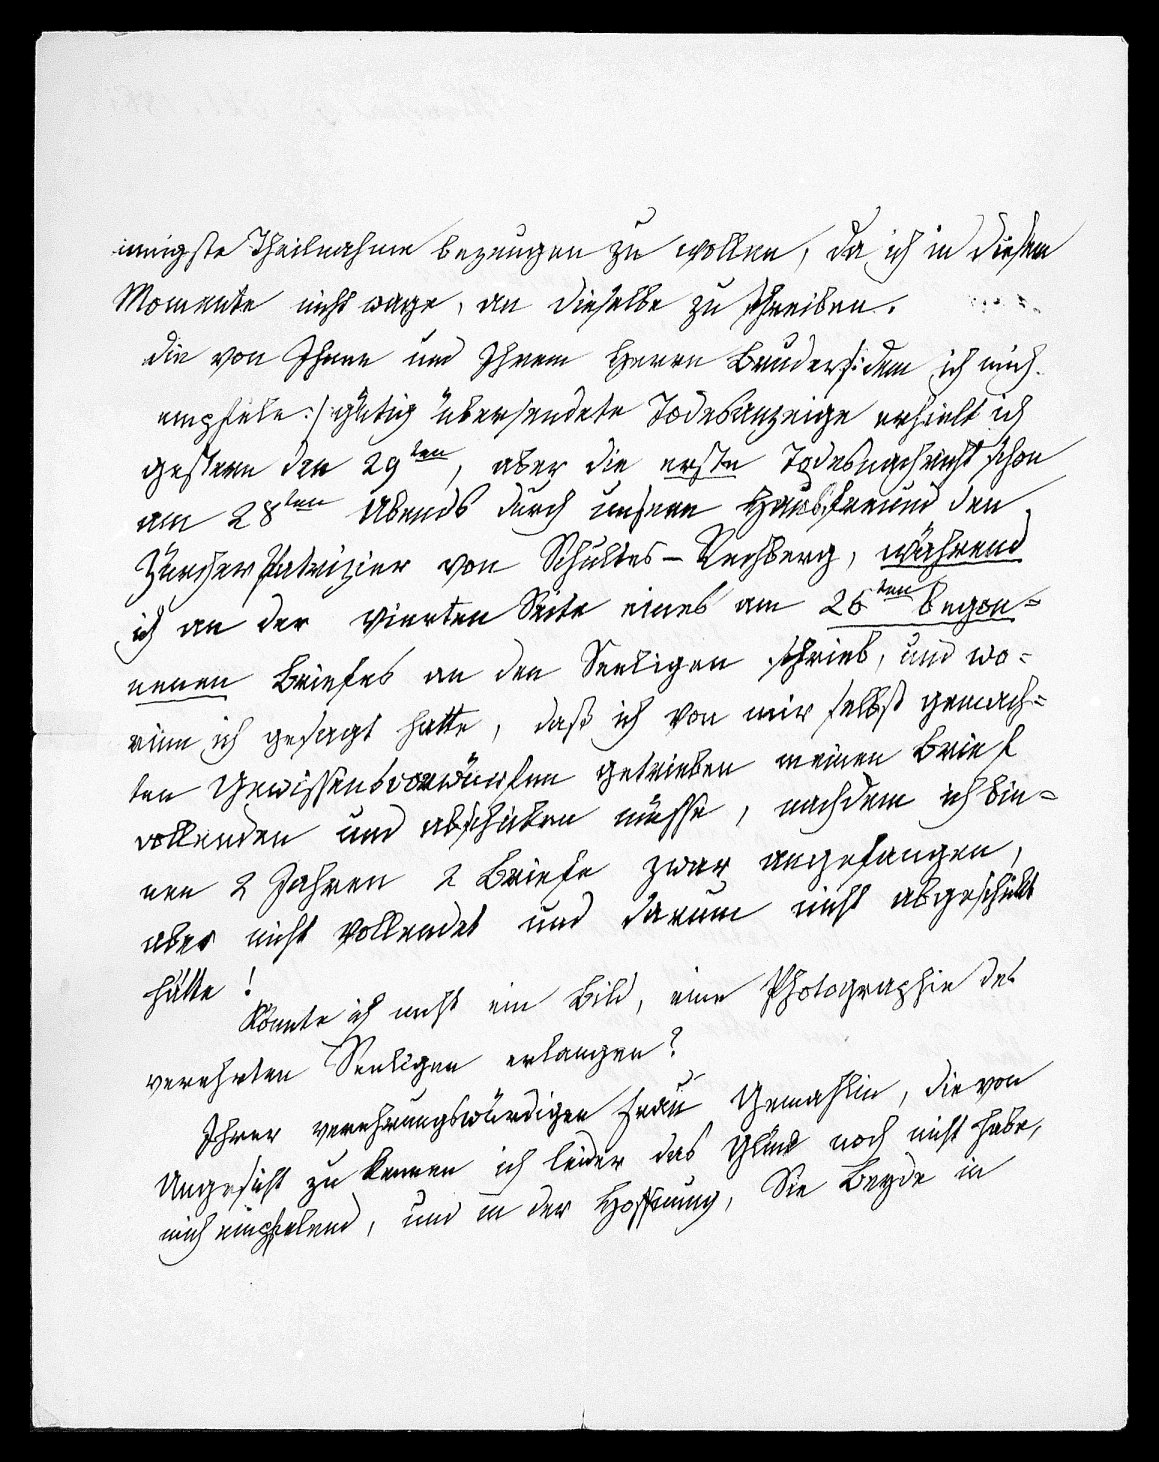 innigste Theilnahme bezeugen zu wollen, da ich in diesem
Momente nicht wage, an dieselbe zu schreiben.
Die von Ihnen und Ihrem Herrn Bruder /: dem ich mich
empfele :/ gütig übersendete Todesanzeige erhielt ich
gestern den 29ten, aber die erste Todesnachricht schon
am 28ten Abends durch unsern Hausfreund den
Zürcher Patrizier von Schultes-Rechberg, während
ich an der vierten Seite eines am 26ten begon=
nenen Briefes an den Seeligen schrieb, und wo=
rinn ich gesagt hatte, daß ich von mir selbst gemach=
ten Gewissensvorwürfen getrieben meinen Brief
vollenden und abschicken müsse, nachdem ich bin=
nen 2 Jahren 2 Briefe zwar angefangen,
aber nicht vollendet und darum nicht abgeschickt
hätte!
Könnte ich nicht ein Bild, eine Photographie des
verehrten Seeligen erlangen?
Ihrer verehrungswürdigen Frau Gemahlin, die von
Angesicht zu kennen ich leider das Glück noch nicht habe,
mich empfelend, und in der Hoffnung, Sie Beyde in